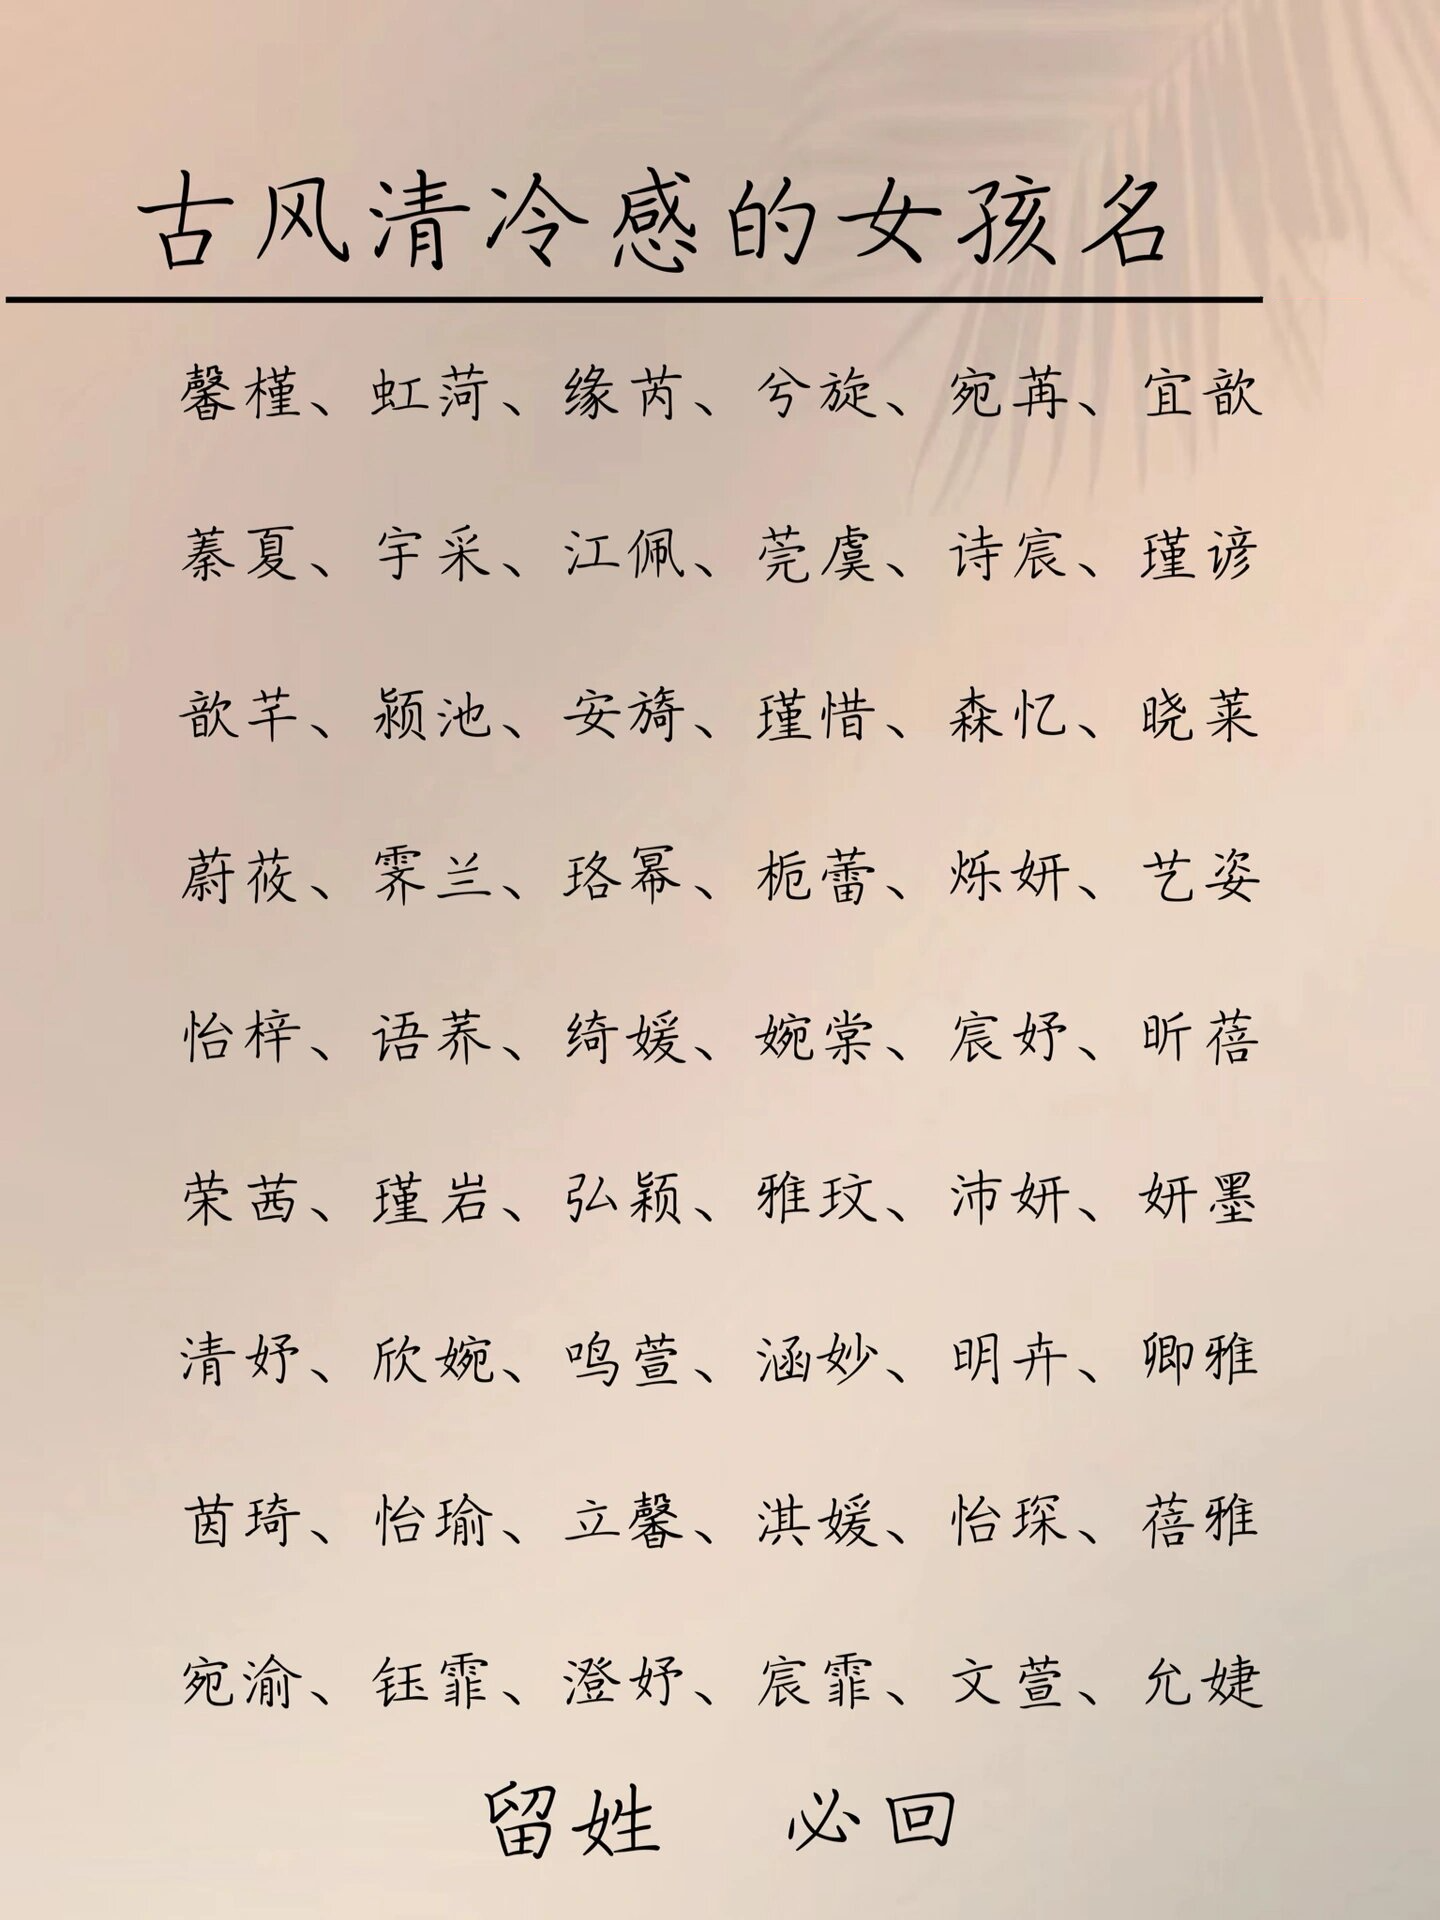 古风清冷感的女孩名
馨槿、虹菏、缘芮、兮旋、宛苒、宜歆
蓁夏、宇采、江佩、莞虞、诗宸、瑾谚
歆芊、颍池、安旖、瑾惜、森忆、晓莱
蔚莜、霁兰、珞幂、栀蕾、烁妍、艺姿
怡梓、语荞、绮媛、婉棠、宸妤、昕蓓
荣茜、瑾岩、弘颖、雅玟、沛妍、妍墨
清妤、欣婉、鸣萱、涵妙、明卉、卿雅
茵琦、怡瑜、立馨、淇媛、怡琛、蓓雅
宛渝、钰霏、澄妤、宸霏、文萱、允婕
留姓 必回